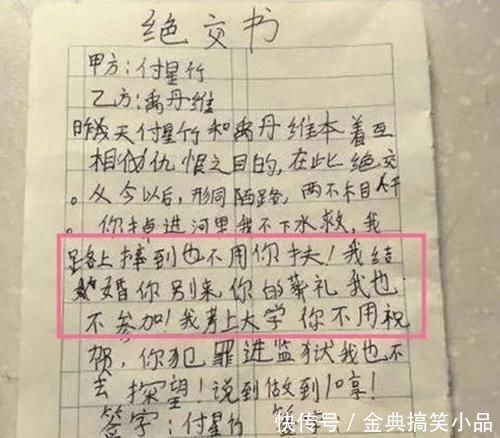 绝交书
甲方:付星竹
乙方:禹丹维
昨天付星竹和禹丹维本着互
相仇恨之目的,在此绝交
。从今以后,形同陌路,两不相干
。你掉进河里我不下水救,我
路上摔到也不用你扶!我结
婚你别来你的葬礼我也
不参加!我考上大学你不用祝
贺,你犯罪进监狱我也不
去探望!说到做到!哼!
签字:付星竹
快传号/金典搞笑小品